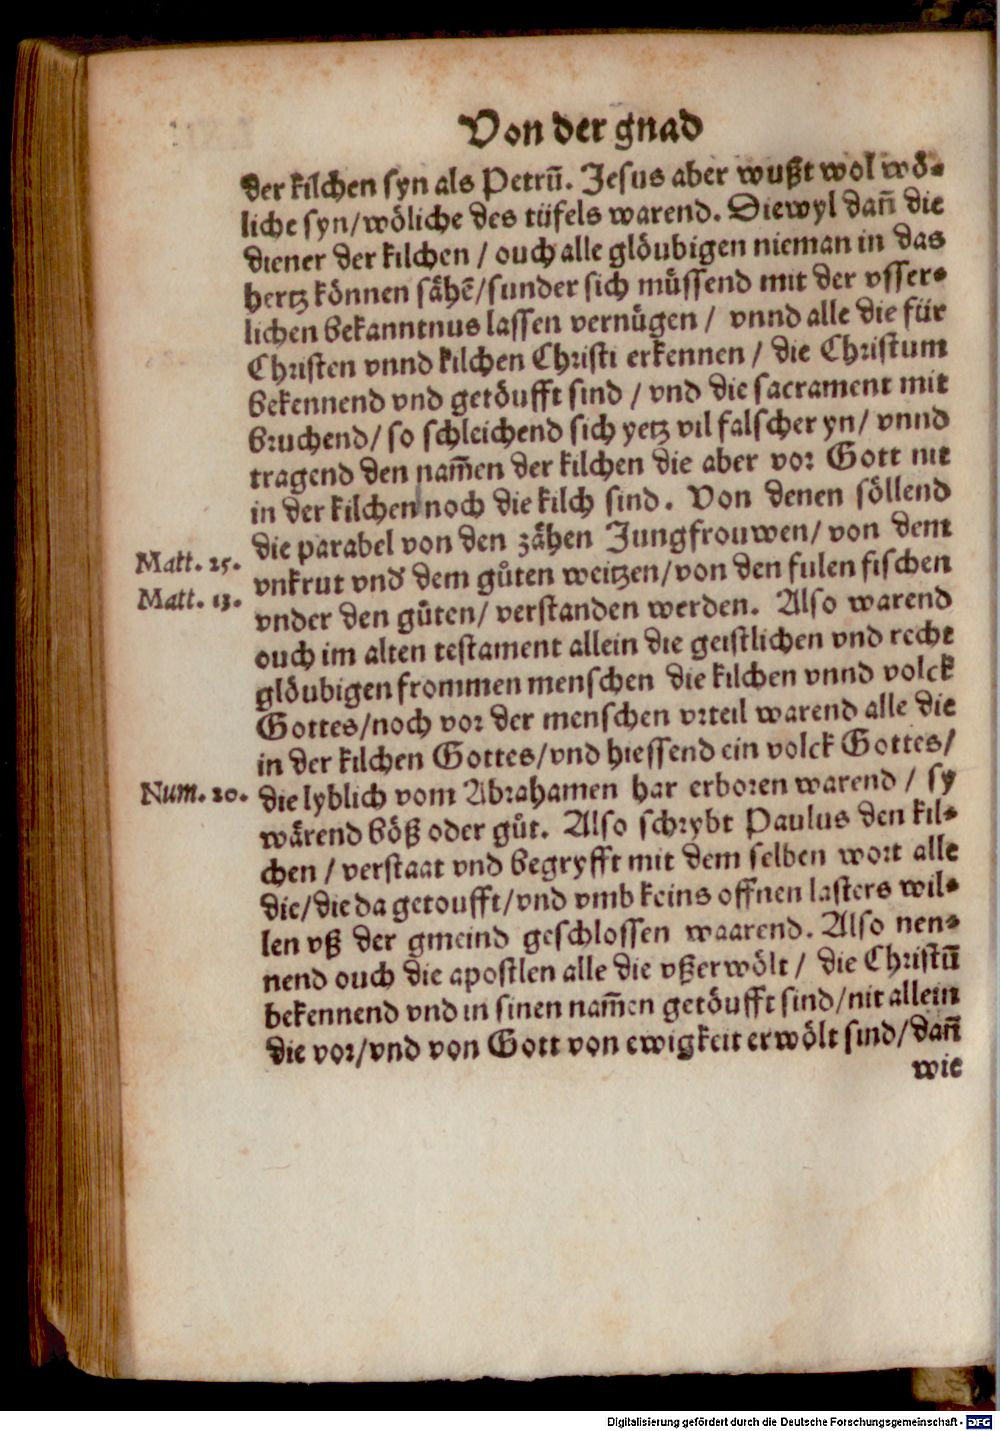 Von der gnad
der kilchen syn als Petrū. Jesus aber wußt wol wö-
liche syn/wöliche des tüfels warend. Diewyl dañ die
diener der kilchen / ouch alle glöubigen nieman in das
hertz können sähē/sunder sich müssend mit der vsser-
lichen bekanntnus lassen vernügen / vnnd alle die für
Christen vnnd kilchen Christi erkennen / die Christum
bekennend vnd getöufft sind / vnd die sacrament mit
bruchend/ so schleichend sich yetz vil falscher yn/ vnnd
tragend den nam̄en der kilchen die aber vor Gott nit
in der kilchen noch die kilch sind. Von denen söllend
die parabel von den zähen Jungfrouwen/ von dem
Matt. 25.
vnkrut vnd dem gůten weitzen/von den fulen fischen
Matt. 13.
vnder den gůten/ verstanden werden. Also warend
ouch im alten testament allein die geistlichen vnd recht
glöubigen frommen menschen die kilchen vnnd volck
Gottes/noch vor der menschen vrteil warend alle die
in der kilchen Gottes/vnd hiessend ein volck Gottes/
Num. 20.
die lyblich vom Abrahamen har erboren warend / sy
wärend böß oder gůt. Also schrybt Paulus den kil-
chen / verstaat vnd begryfft mit dem selben wort alle
die/die da getoufft/vnd vmb keins offnen lasters wil-
len vß der gmeind geschlossen waarend. Also nen-
nend ouch die apostlen alle die vßerwölt/ die Christū
bekennend vnd in sinen nam̄en getöufft sind/nit allein
die vor/vnd von Gott von ewigkeit erwölt sind/dañ
wie
Digitalisierung gefördert durch die Deutsche Forschungsgemeinschaft - DFG